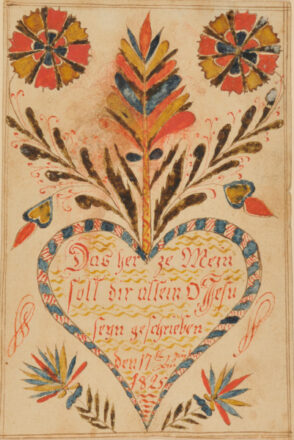 Das her ze Mein
soll dir allein O Jesu
seyn geschrieben
den 17ten
182